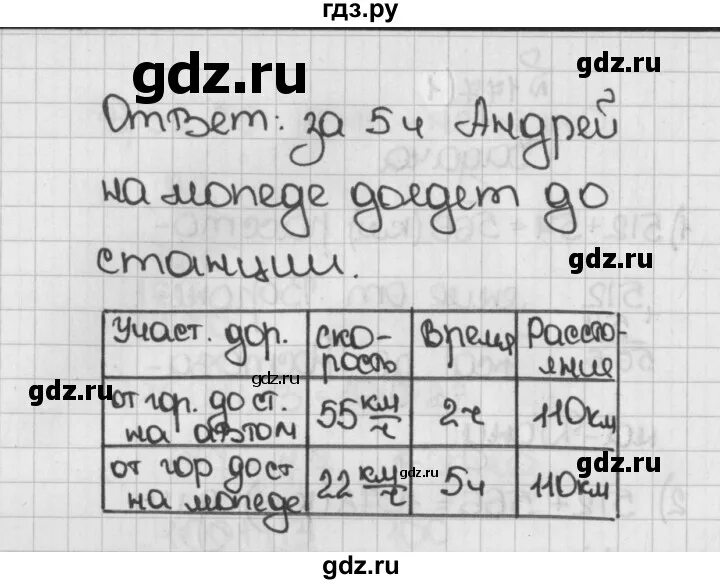 гдз.ру
gdz.ru
gdz.ru
Ответ: за 5ч Андрей
gdz.ru
на мопеде доедет до
gdz.ru
станции.
Участ. дор. | ско-рость | Время | Рассто-яние
gdz.ru
от гор. до ст. на автом | 55 км/ч | 2ч | 110км
gdz.ru
gdz.ru
от гор до ст на мопеде | 22 км/ч | 5ч | 110км
gdz.ru
gdz.ru
gdz.ru